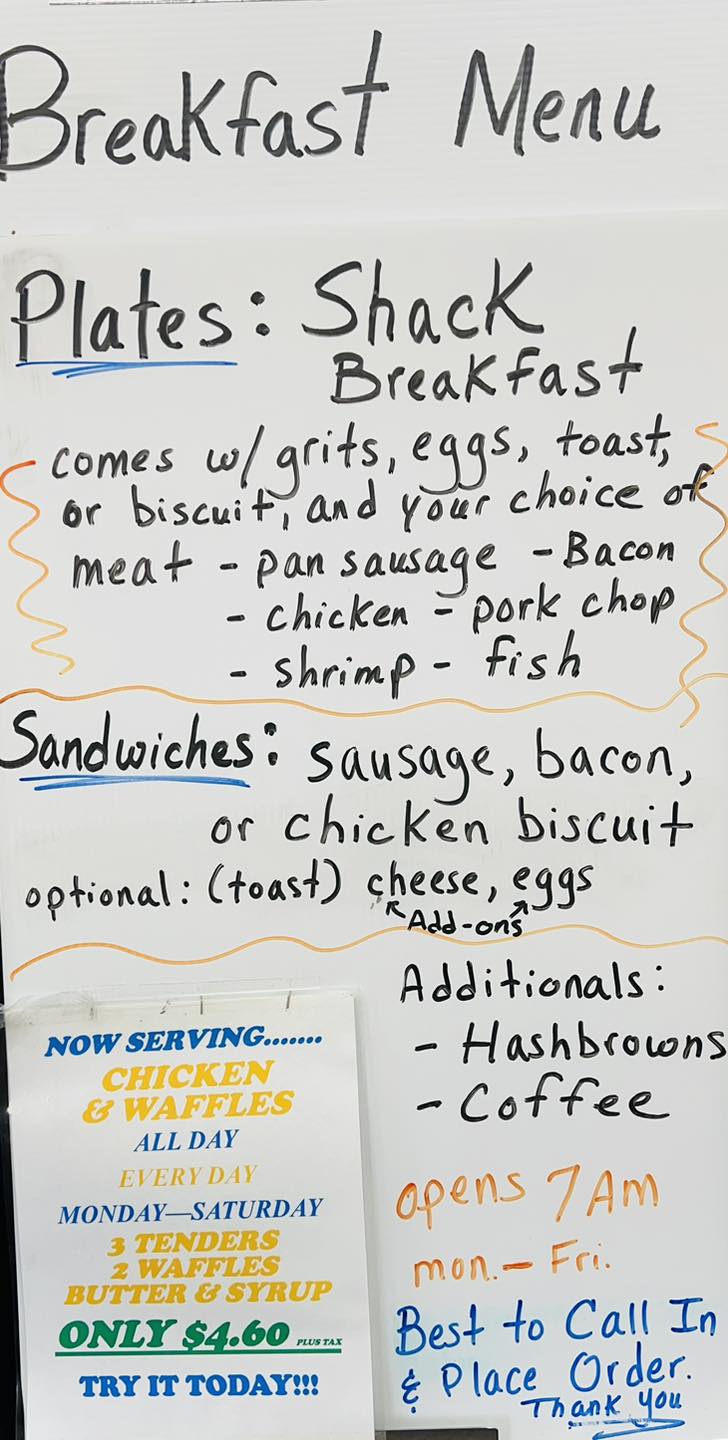 Breakfast Menu
Plates: Shack
Breakfast
comes w/ grits, eggs, toast,
or biscuit, and your choice of
meat - pan sausage - Bacon
- chicken - pork chop
- shrimp - fish
Sandwiches: sausage, bacon,
or chicken biscuit
optional: (toast) cheese, eggs
Add-ons
Additionals:
- Hashbrowns
- Coffee
opens 7Am
mon. - Fri.
Best to Call In
& Place Order.
Thank you
NOW SERVING.......
CHICKEN
& WAFFLES
ALL DAY
EVERY DAY
MONDAY—SATURDAY
3 TENDERS
2 WAFFLES
BUTTER & SYRUP
ONLY $4.60 PLUS TAX
TRY IT TODAY!!!